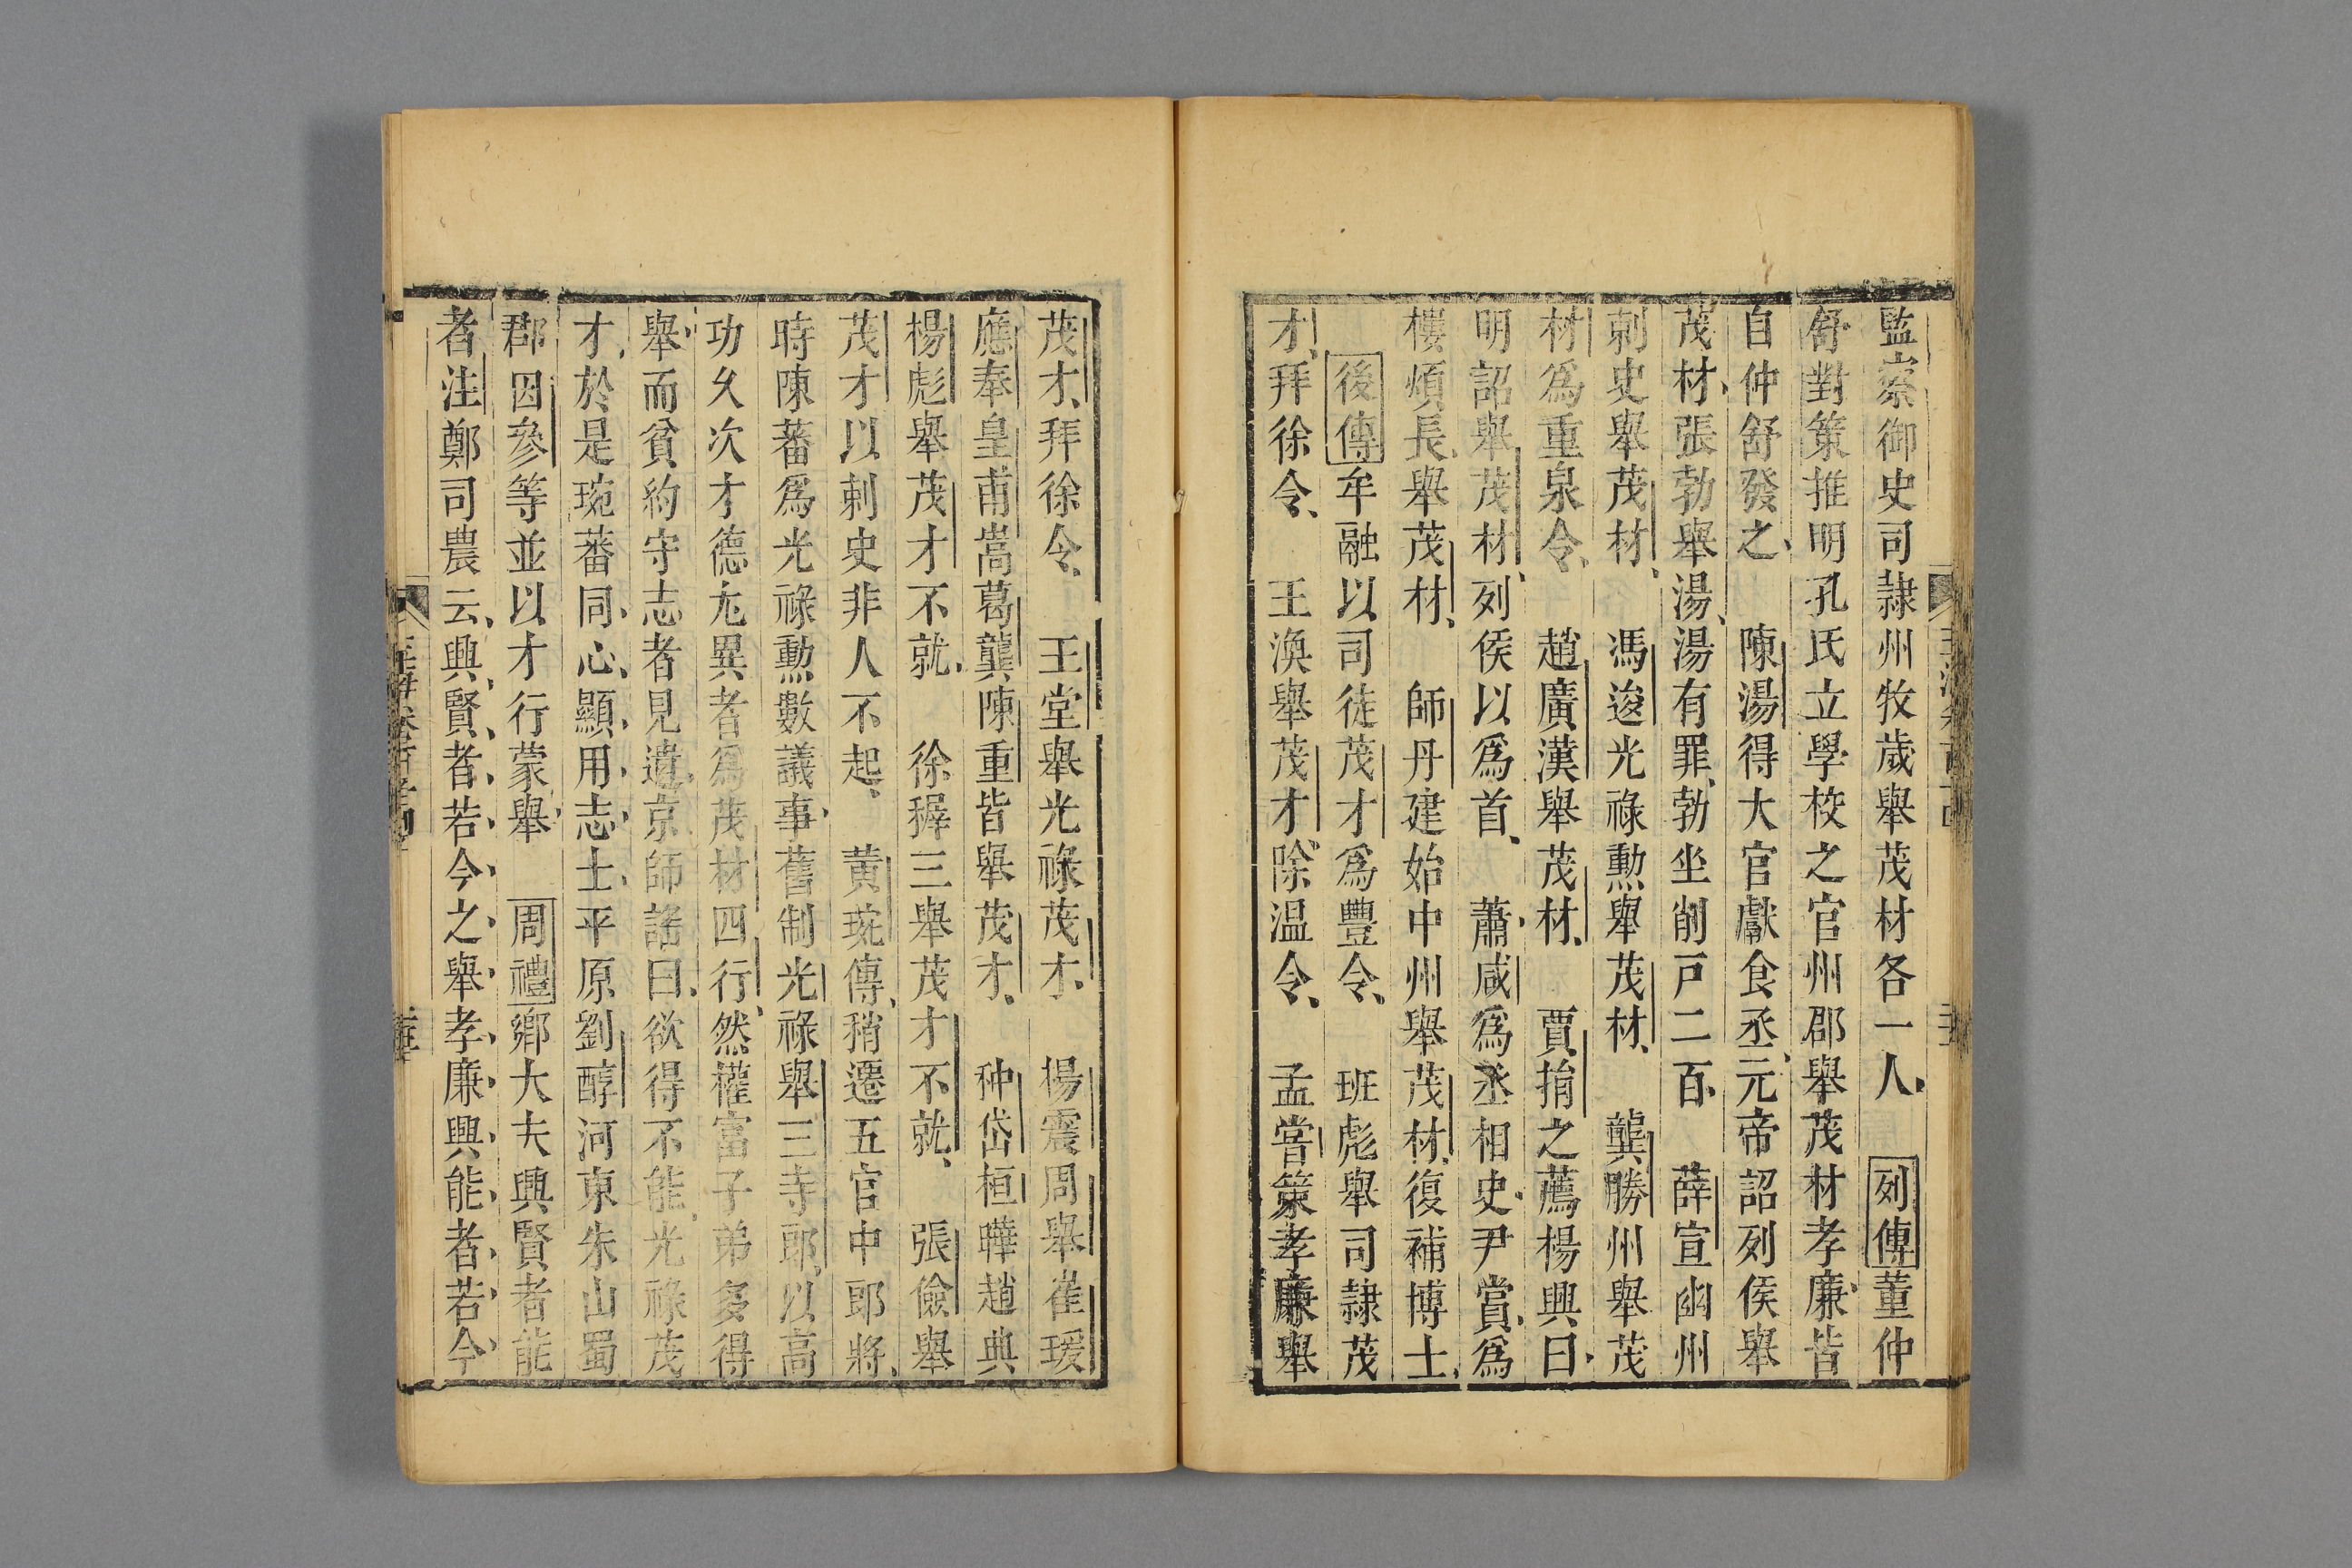 監察御史司隷州牧歲舉茂材各一人、列傳董仲
舒對策推明孔氏立學校之官州郡舉茂材孝廉皆
自仲舒發之、陳湯得大官獻食丞、元帝詔列侯舉
茂材、張勃舉湯、湯有罪、勃坐削戸二百、薛宣幽州
刺史舉茂材、馮逡光祿勳舉茂材、龔勝州舉茂
材爲重泉令、趙廣漢舉茂材、賈捐之薦楊興曰、
明詔舉茂材、列侯以爲首、蕭咸爲丞相史、尹賞、爲
樓煩長、舉茂材、師丹建始中州舉茂材、復補博士、
後傳牟融以司徒茂才爲豐令、班彪舉司隷茂
才、拜徐令、王渙舉茂才、除温令、孟嘗策孝廉舉
茂才、拜徐令、王堂舉光祿茂才、楊震周舉崔瑗
應奉皇甫嵩葛龔陳重皆舉茂才、种岱桓曄趙典
楊彪舉茂才不就、徐穉三舉茂才不就、張儉舉
茂才以刺史非人不起、黄琬傳、稍遷五官中郎將、
時陳蕃爲光祿勳數議事、舊制光祿舉三寺郎、以高
功久次才德尤異者爲茂材四行、然權富子弟多得
舉、而貧約守志者見遺、京師謠曰、欲得不能、光祿茂
才、於是琬蕃同心、顯用志士、平原劉醇河東朱山蜀
郡因參等並以才行蒙舉、周禮鄉大夫興賢者能
者注鄭司農云、興賢者、若今之舉孝廉、興能者、若今